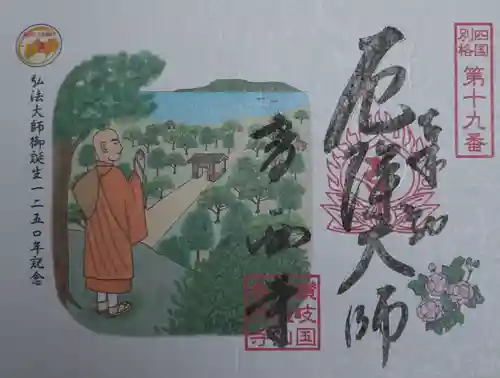 四国
別格
第十九番
厄除大師
香西寺
讃岐国
弘法大師御誕生一二五〇年記念